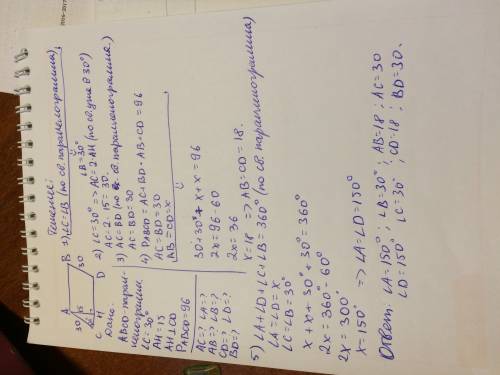 A
B
30
15
30
C
H
D
Дано:
ABCD-парал-
лелограмм.
∠C=30°
AH=15
AH⊥CD
P ABCD=96
AC=? ∠A=?
AB=? ∠B=?
CD=? ∠D=?
BD=?
Решение:
1) ∠C=∠B (по св. параллелограмма),
∠B=30°
2) ∠C=30° => AC=2·AH (по св. угла в 30°)
AC=2·15=30.
3) AC=BD (по св. параллелограмма.)
AC=BD=30
4) P ABCD=AC+BD+AB+CD=96
AC=BD=30
AB=CD=x
30+30+x+x=96
2x=96-60
2x=36
x=18 => AB=CD=18.
5) ∠A+∠D+∠C+∠B=360° (по св. параллелограмма)
∠A=∠D=x
∠C=∠B=30°
x+x+30°+30°=360°
2x=360°-60°
2x=300°
x=150° => ∠A=∠D=150°
Ответ: ∠A=150°; ∠B=30°; AB=18; AC=30
∠D=150° ∠C=30°; CD=18; BD=30.